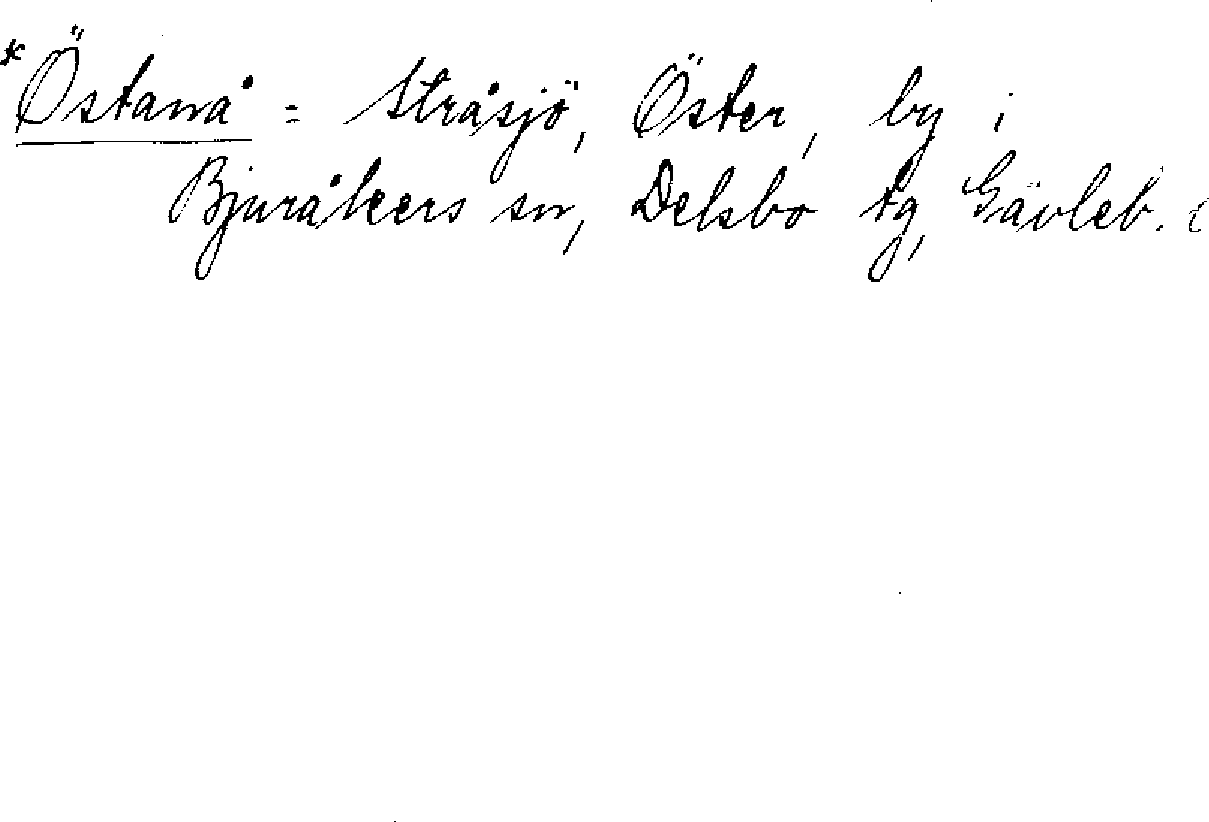 *Östanå = Stråsjö, Öster, by i
Bjuråkers sn, Delsbo tg, Gävleb.